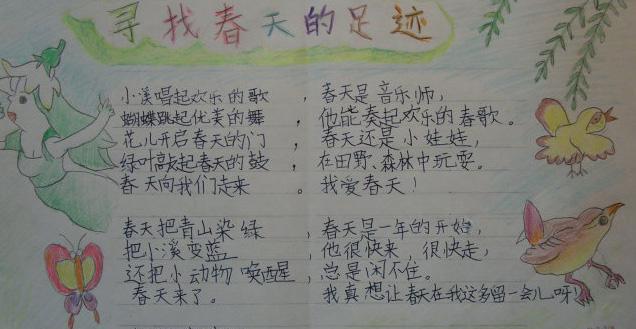 寻找春天的足迹
小溪唱起欢乐的歌，
蝴蝶跳起优美的舞，
花儿开启春天的门，
绿叶敲起春天的鼓，
春天向我们走来。
春天把青山染绿，
把小溪变蓝，
还把小动物唤醒，
春天来了。
春天是音乐师，
他能奏起欢乐的春歌。
春天还是小娃娃，
在田野、森林中玩耍。
我爱春天！
春天是一年的开始，
他很快来，很快走，
总是闲不住。
我真想让春天在我这多留一会儿呀